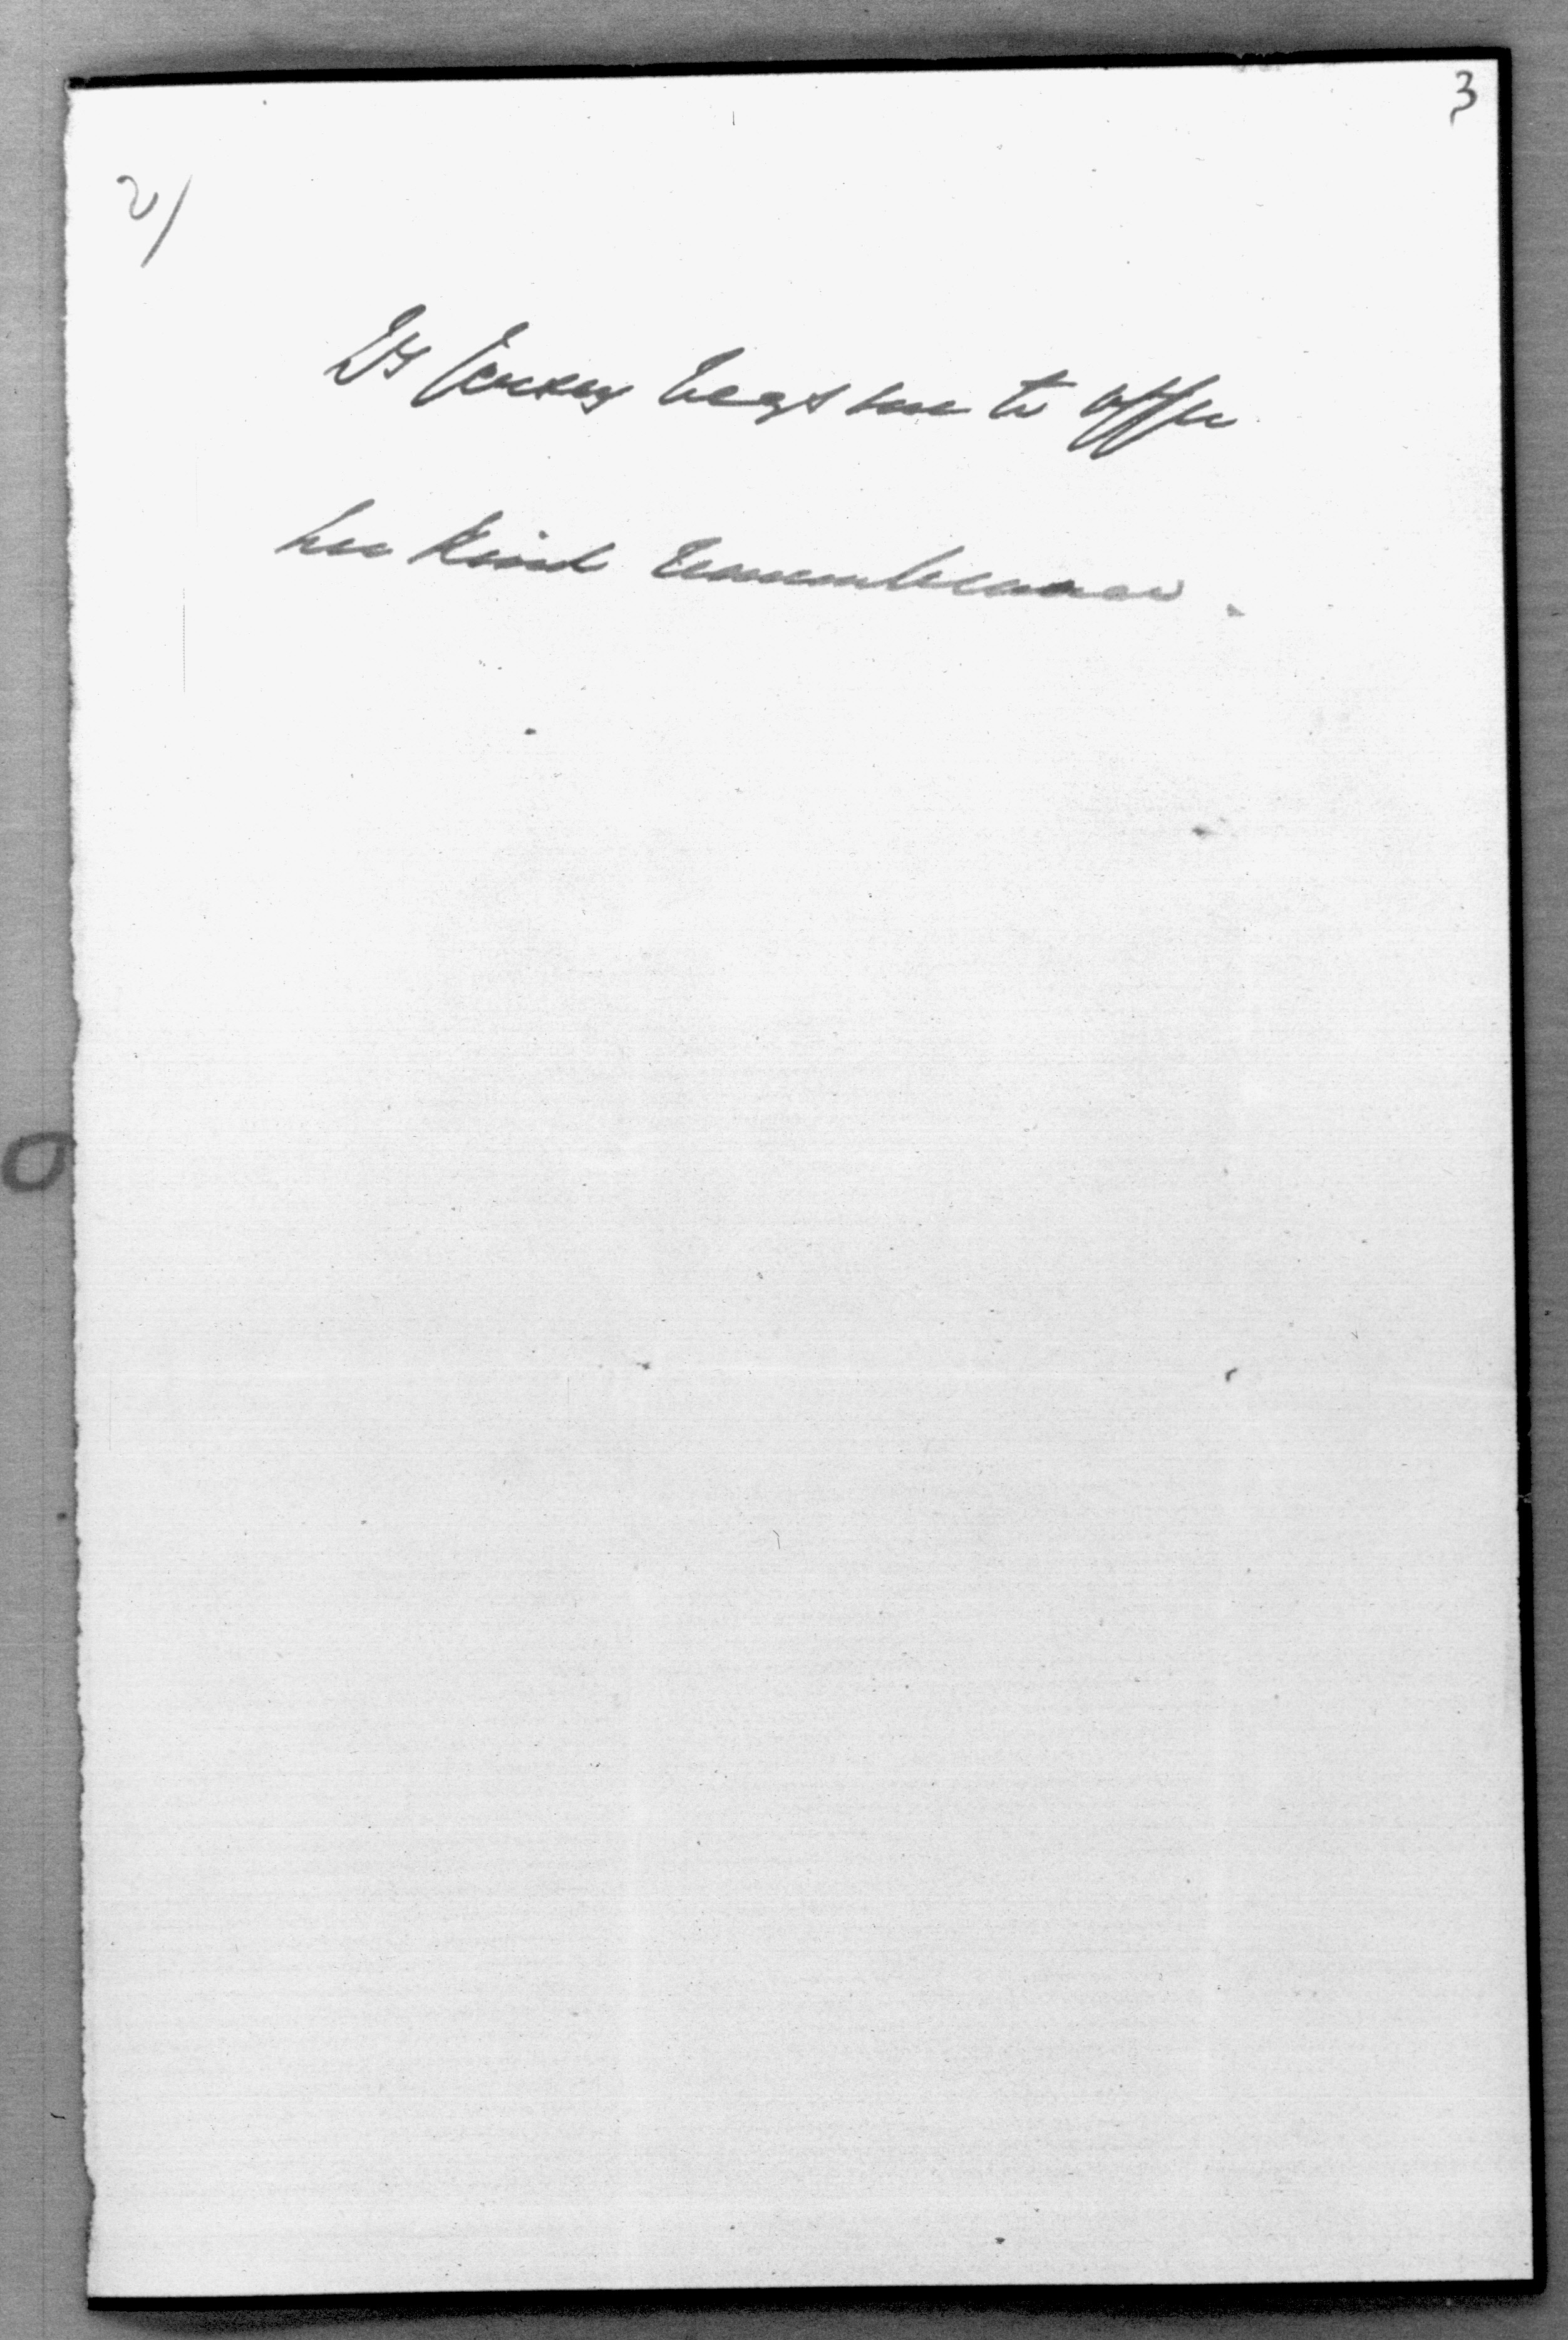 3
2/
begs me to offer
her kind remembrances.